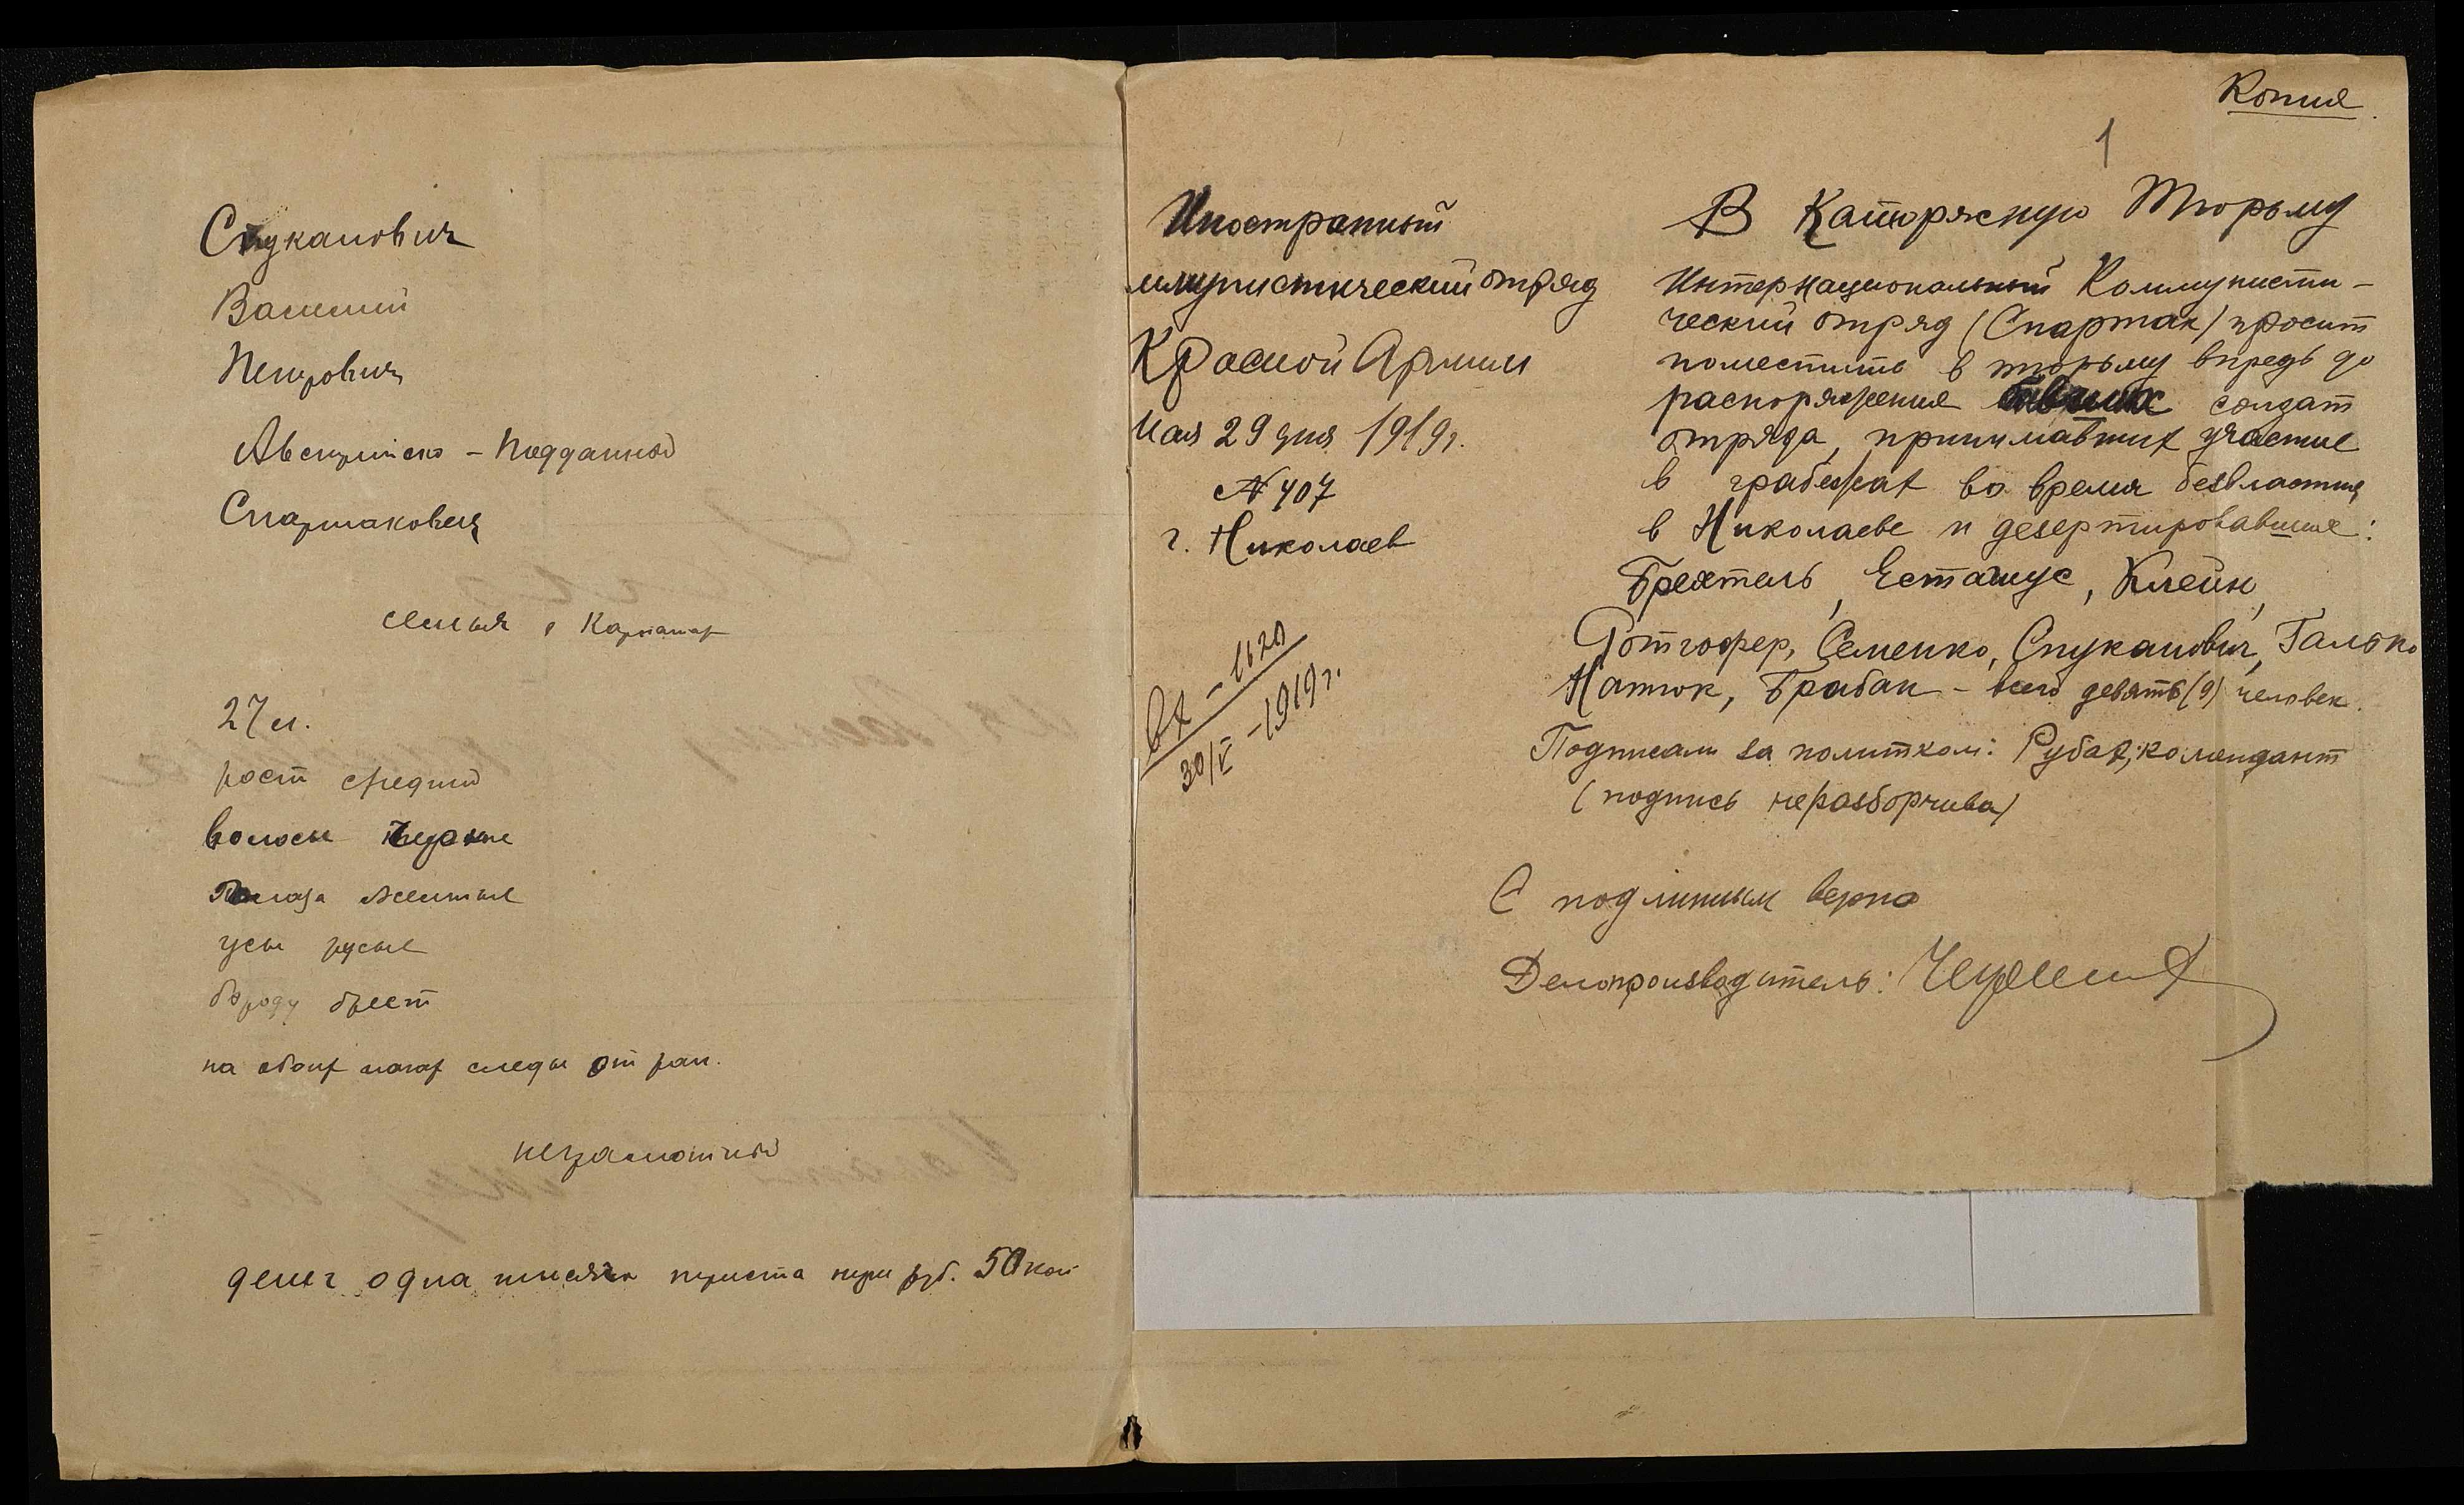 Спуканович
Василий
Петрович
Австрийско - Подданной
Спартаковец
семья в Карпатах
27 л.
рост средний
волосы черные
глаза желтые
усы русые
бороду бреет
на обоих ногах следы от ран.
неграмотный
денег одна тысяча триста три руб. 50 коп
Копия
1
Иностранный
ммунистический отряд
Красной Армии
Мая 29 дня 1919 г.
№ 407
г. Николаев
Вх - 1620
30/V - 1919 г.
В Каторжную Тюрьму
Интернациональный Коммунисти-
ческий отряд (Спартак) просит
поместить в тюрьму впредь до
распоряжения солдат
отряда, принимавших участие
в грабежах во время безвластия
в Николаеве и дезертировавшие:
Брехтель, Естагус, Клейн,
Ротгофер, Семенко, Спуканович, Галько
Натюк, Брабан - всего девять (9) человек.
Подписали за политком: Рубах; комендант
(подпись неразборчива)
С подлинным верно
Делопроизводитель: